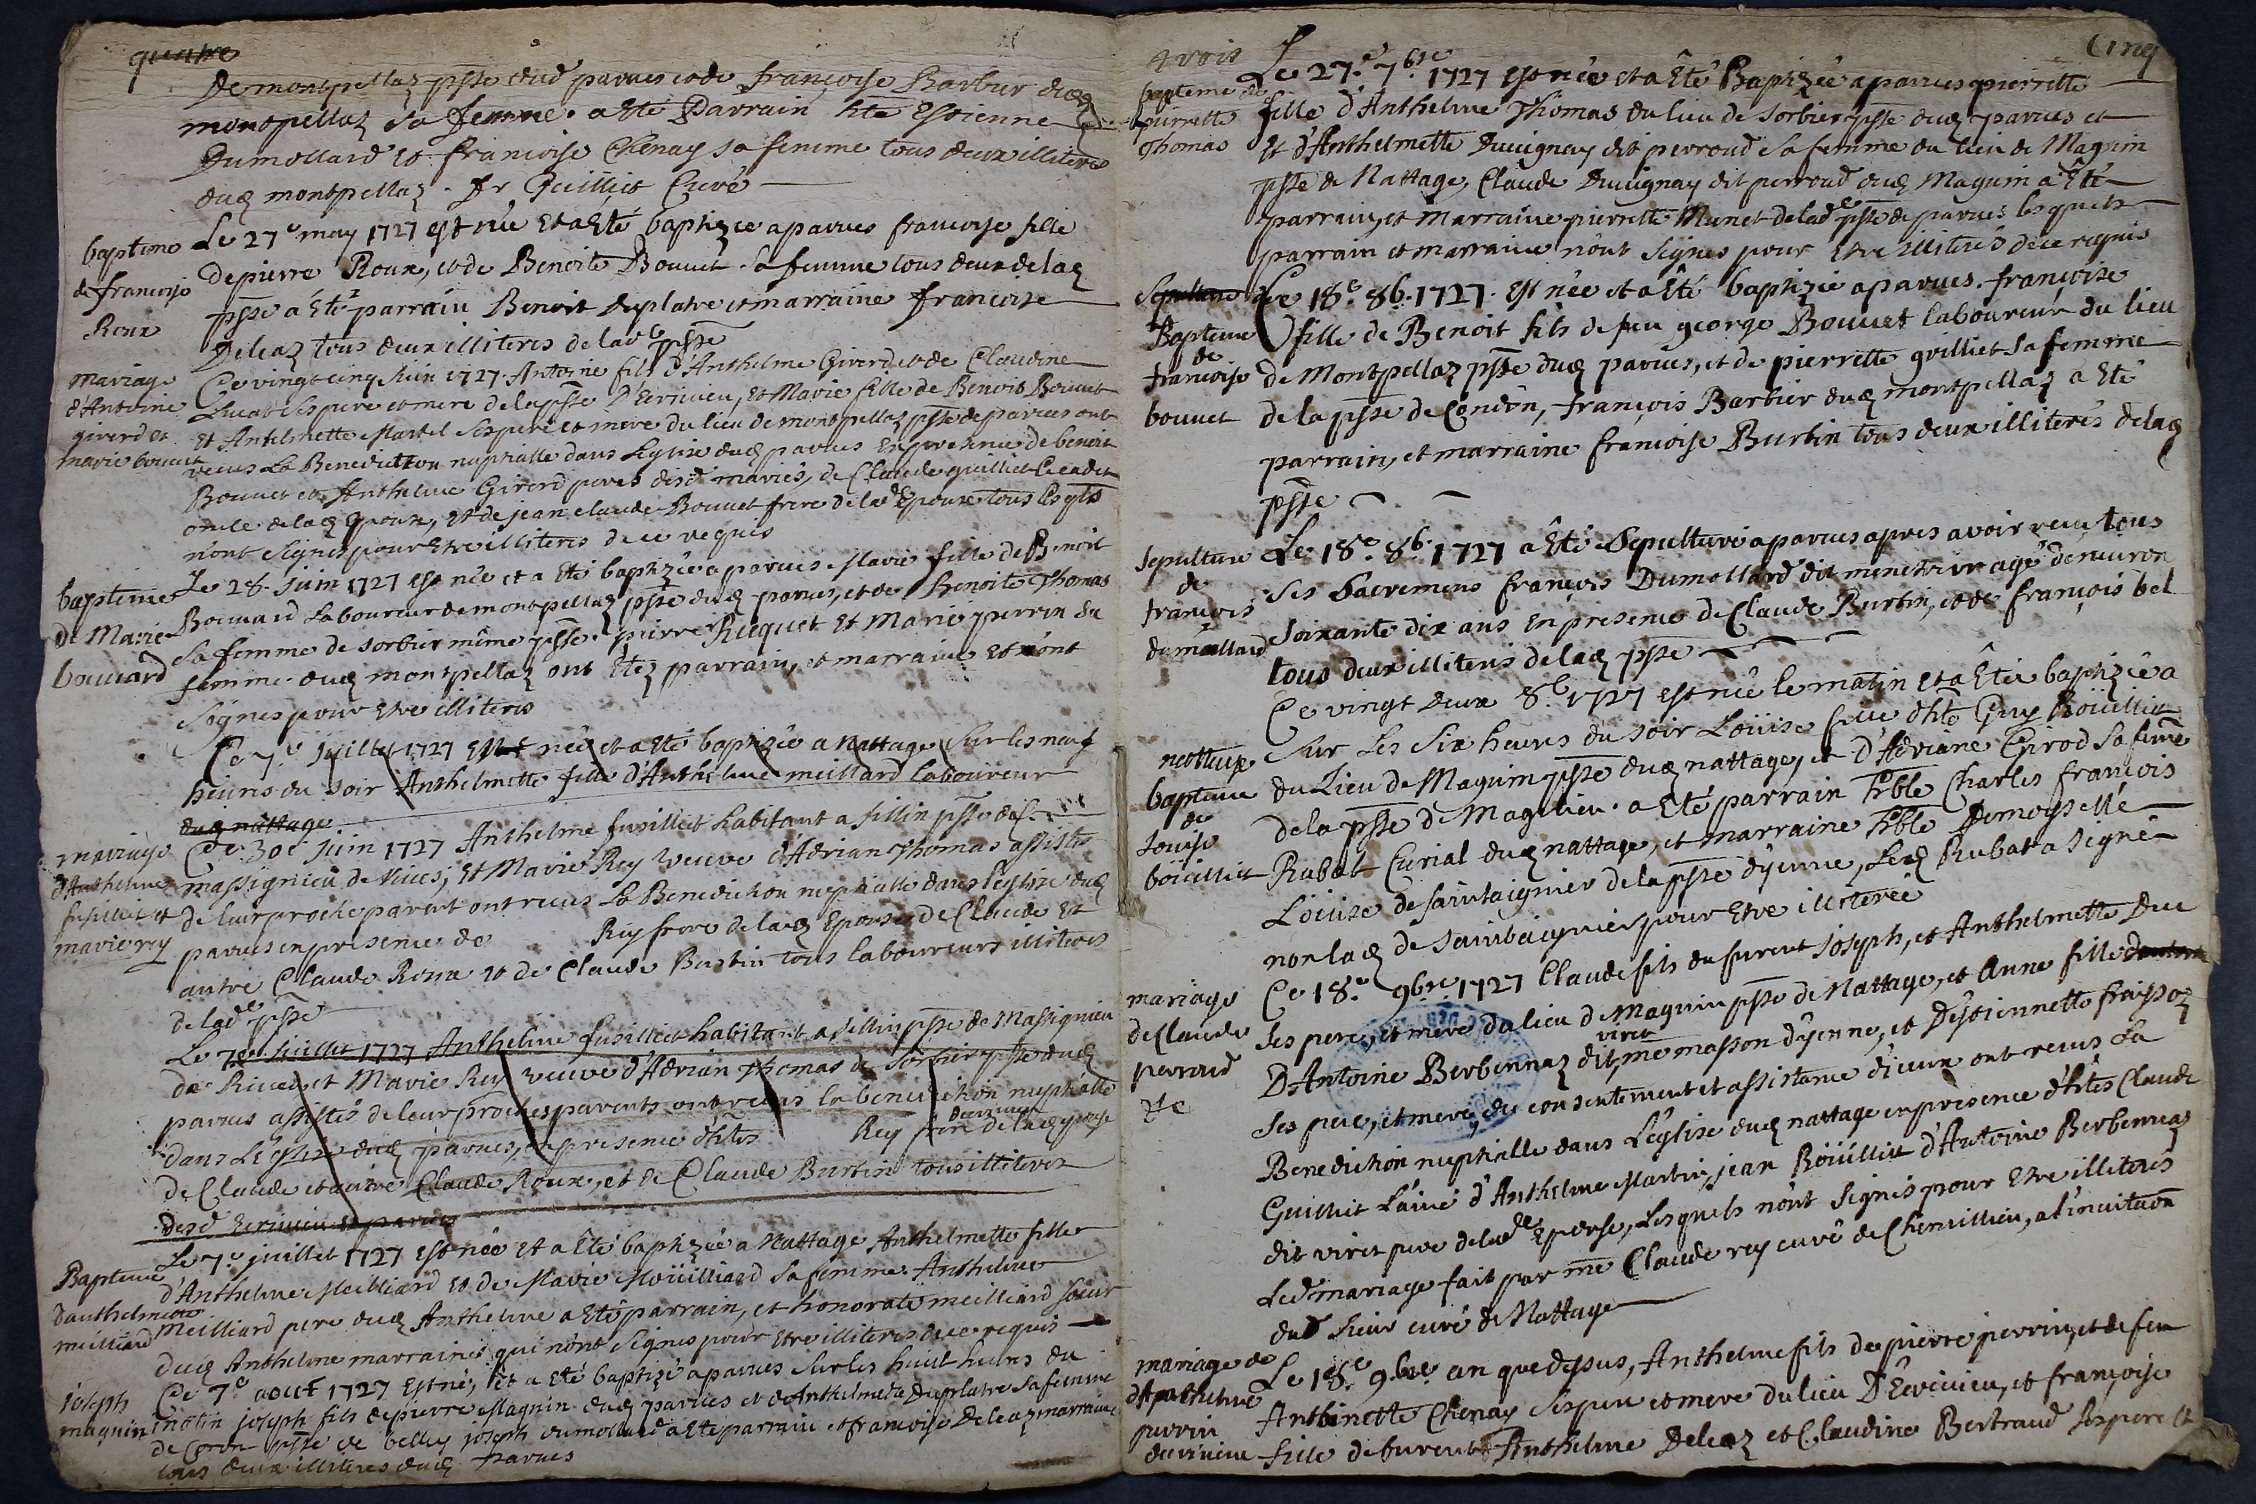 quatre
De montpellaz psse dud parues et de françoise Barbier dud
montpellaz sa femme. a Eté Parrain hte Estienne
Dumollard et francoise Chenay sa femme tous deux illiteres
dud montpellaz. Guilliet Curé
baptême de francoise Roux
Le 27e may 1727 est née Et a Eté baptizée a parues francoise fille
de pierre Roux, et de Benoite Bouuet sa femme tous deux de lad
psse a Eté parrain Benoit Duplatre et marraine francoise
Deleaz tous deux illiteres de lade psse
mariage d'Antoine girerd et marie bouuet
Ce vingt cinq Juin 1727 Antoine fils d'Anthelme Girerd et de Claudine
Lucat ses pere et mere de la psse D'Ecriuieu, et Marie fille de Benoit Bouuet
Et Antelmette Martel ses pere et mere du lieu de montpellaz psse de parues ont
recus La Benediction nuptialle dans L'Eglise dud parues En presence de benoit
Bouuet et Anthelme Girerd peres desd mariés, de Claude guilliet Cicadet
oncle de lad Epouse, et de jean claude Bouuet frere de lad Epouse tous lesqls
n'ont signés pour Etre illiteres de ce requis
baptême de Marie bouuard
Le 28. juin 1727 est née et a Eté baptizée a parues Marie fille de Benoit
Bouuard Laboureur de montpellaz psse dud parues, et de Benoite Thomas
sa femme de sorbier même psse. pierre Ruquet et Marie perrin sa
femme dud montpellaz ont Etez parrain, et marraine et n'ont
signes pour Etre illiteres
Ce 7e juillet 1727 Est née et a Eté baptizée a Nattage sur les neuf
heures du soir Anthelmette fille d'Anthelme meilliard laboureur
dud nattage
mariage d'Anthelme fusilliet et marie rey
Ce 30e juin 1727 Anthelme fusilliet habitant a fillin psse de
massignieu de Riues, Et Marie Rey veuve d'Adrian Thomas assistés
de leur proche parent ont recus La Benediction nuptialle dans l'eglise dud
parues en presence de Rey frere de lad Epouse de Claude Et
autre Claude Roux et de Claude Burtin tous laboureurs illiteres
de lade psse
Le 7e Juillet 1727 Anthelme fusilliet habitant a fillin psse de Massignieu
de Riues, et Marie Rey veuve d'Adrian Thomas de Sorbier psse dud
parues assistés de leur proches parents ont recus la benediction nuptialle
dans L'Eglise dud parues, en presence d'htes Rey frere de lad Epouse
de Claude et autre Claude Roux, et de Claude Burtin tous illiteres
desd Ecriuieu Et parues
Bapteme d'anthelmette meilliard
Le 7e juillet 1727 est née Et a Eté baptizée a Nattage Anthelmette fille
d'Anthelme Meilliard et de Marie Moüilliard sa femme. Anthelme
Meilliard pere dud Anthelme a Eté parrain, et honorate meilliard soeur
dud Anthelme marraine qui n'ont signes pour Etre illiteres de ce requis
joseph magnin
Ce 7e aout 1727 Est né, et a Eté baptizé a parues sur les huit heures du
matin joseph fils de pierre Magnin dud parues et d'Anthelmette Duplatre sa femme
de Coron psse de belley joseph dumollard a Eté parrain et francoise Deleaz marraine
tous deux illiteres dud parues
Cinq
bapteme de pierrette Thomas
Le 27e 7bre 1727 Est née et a Eté Baptizée a parues pierrette
fille d'Anthelme Thomas du lieu de sorbier psse dud parues et
Et d'Anthelmette Ducugnay dit perroud sa femme du lieu de Magnin
psse de Nattage, Claude Ducugnay dit perroud dud Magnin a Eté
parrain, et Marraine pierrette Munet de lade psse de parues lesquels
parrain et marraine n'ont signes pour Etre illiteres de ce requis
Sepulture
Bapteme de francoise bouuet
Ce 18e 8b. 1727. Est née et a Eté baptizée a parues. françoise
fille de Benoit fils de feu george Bouuet laboureur du lieu
de Montpellaz psse dud parues, et de pierrette guilliet sa femme
de la psse de Condon, françois Barbier dud montpellaz a Eté
parrain, et marraine francoise Burtin tous deux illiteres de lad
psse
sepulture de françois dumollard
Le 18e 8b. 1727 a Eté Sepulturé a parues apres avoir recu tous
ses Sacremens françois Dumollard dit menetrier agé d'enuiron
Soixante dix ans En presence de Claude Burtin, et de françois bel
tous deux illiteres de lad psse
bapteme de Louise boüilliet
Ce vingt deux 8b. 1727 est née le matin et a Eté baptizée a
sur Les Six heures du soir Loüise fille d'hte Guy Boüilliet
du Lieu de Magnin psse dud nattage, et d'Adriane Girod sa feme
de la psse de Magnieu. a Eté parrain hble Charles francois
Rubat Curial dud nattage, et marraine hble Demoyselle
Loüise de saintaignier de la psse d'yenne, Led Rubat a signé
non lad de saintaignier pour Etre illiterée
mariage de Claude perroud
Ce 18e 9bre 1727 Claude fils du furent joseph, et Anthelmette Duc
ses pere, et mere du lieu de Magnin psse de Nattage, et Anne fille
D'Antoine Berbennaz dit viret me masson d'yenne, et D'estiennette fraisson
ses pere, et mere, du consentement et assistance d'jceux ont recus La
Benediction nuptialle dans L'église dud nattage en presence d'htes Claude
Guilliet L'ainé d'Anthelme Martin, jean Boüilliet d'Antoine Berbennaz
dit viret pere de lade Epouse, Lesquels n'ont signés pour Etre illiterés
Led mariage fait par me Claude rey curé de Cheuillieu, a l'inuitation
dud sieur curé de Nattage
mariage de d'Anthelme perrin decriuieu
Le 18e 9bre an que dessus, Anthelme fils de pierre perrin, et de feu
Anthoinette Chenay ses pere et mere du lieu D'Ecriuieu, et françoise
fille de burent Anthelme Deleaz et Claudine Bertrand ses pere et